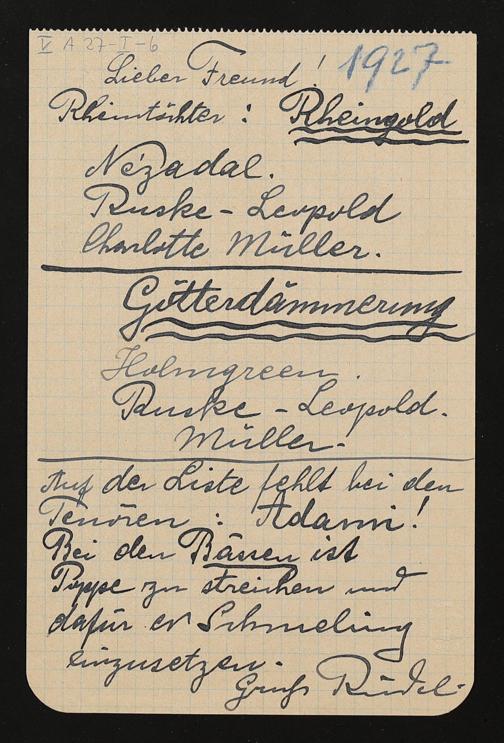 V A 27-I-6
Lieber Freund!
1927
Rheintöchter: Rheingold
Nezadal.
Ruske-Leopold
Charlotte Müller.
Götterdämmerung
Holmgreen.
Ruske-Leopold.
Müller.
Auf der Liste fehlt bei den
Tenören: Adami!
Bei den Bässen ist
Poppe zu streichen und
dafür ev Schmeling
einzusetzen.
Gruß Rüdel